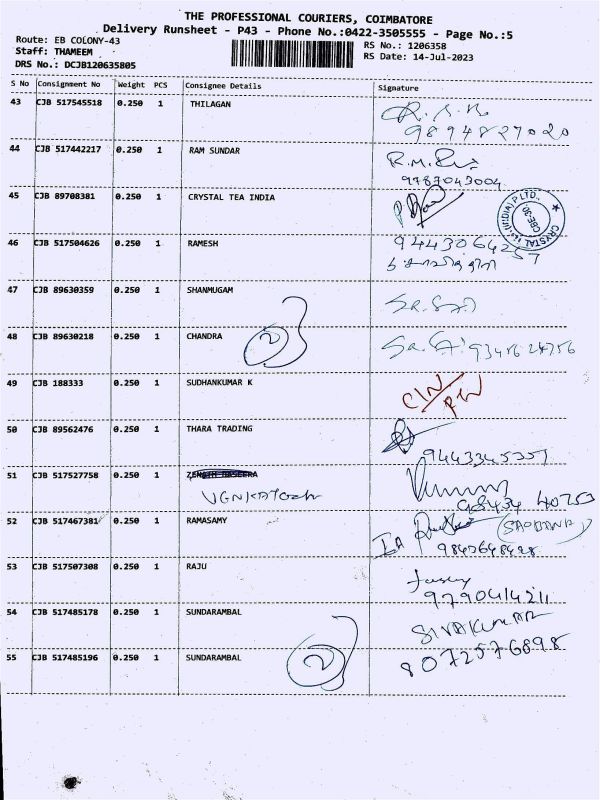 THE PROFESSIONAL COURIERS, COIMBATORE
Delivery Runsheet - P43 - Phone No.:0422-3505555 - Page No.:5
Route: EB COLONY-43
Staff: THAMEEM
DRS No.: DCJB120635805
RS No.: 1206358
RS Date: 14-Jul-2023
S No Consignment No Weight PCS Consignee Details Signature
43 CJB 517545518 0.250 1 THILAGAN
9894827020
44 CJB 517442217 0.250 1 RAM SUNDAR
9787043004
45 CJB 89708381 0.250 1 CRYSTAL TEA INDIA
CRYSTAL (INDIA) P LTD. CBE-30
46 CJB 517504626 0.250 1 RAMESH
9443064257
47 CJB 89630359 0.250 1 SHANMUGAM
48 CJB 89630218 0.250 1 CHANDRA
2
49 CJB 188333 0.250 1 SUDHANKUMAR K
50 CJB 89562476 0.250 1 THARA TRADING
9443345357
51 CJB 517527758 0.250 1
98434 40753
52 CJB 517467381 0.250 1 RAMASAMY
9843648428
53 CJB 517507308 0.250 1 RAJU
9790414211
54 CJB 517485178 0.250 1 SUNDARAMBAL
SIVAKUMAR
55 CJB 517485196 0.250 1 SUNDARAMBAL
2
8072576898